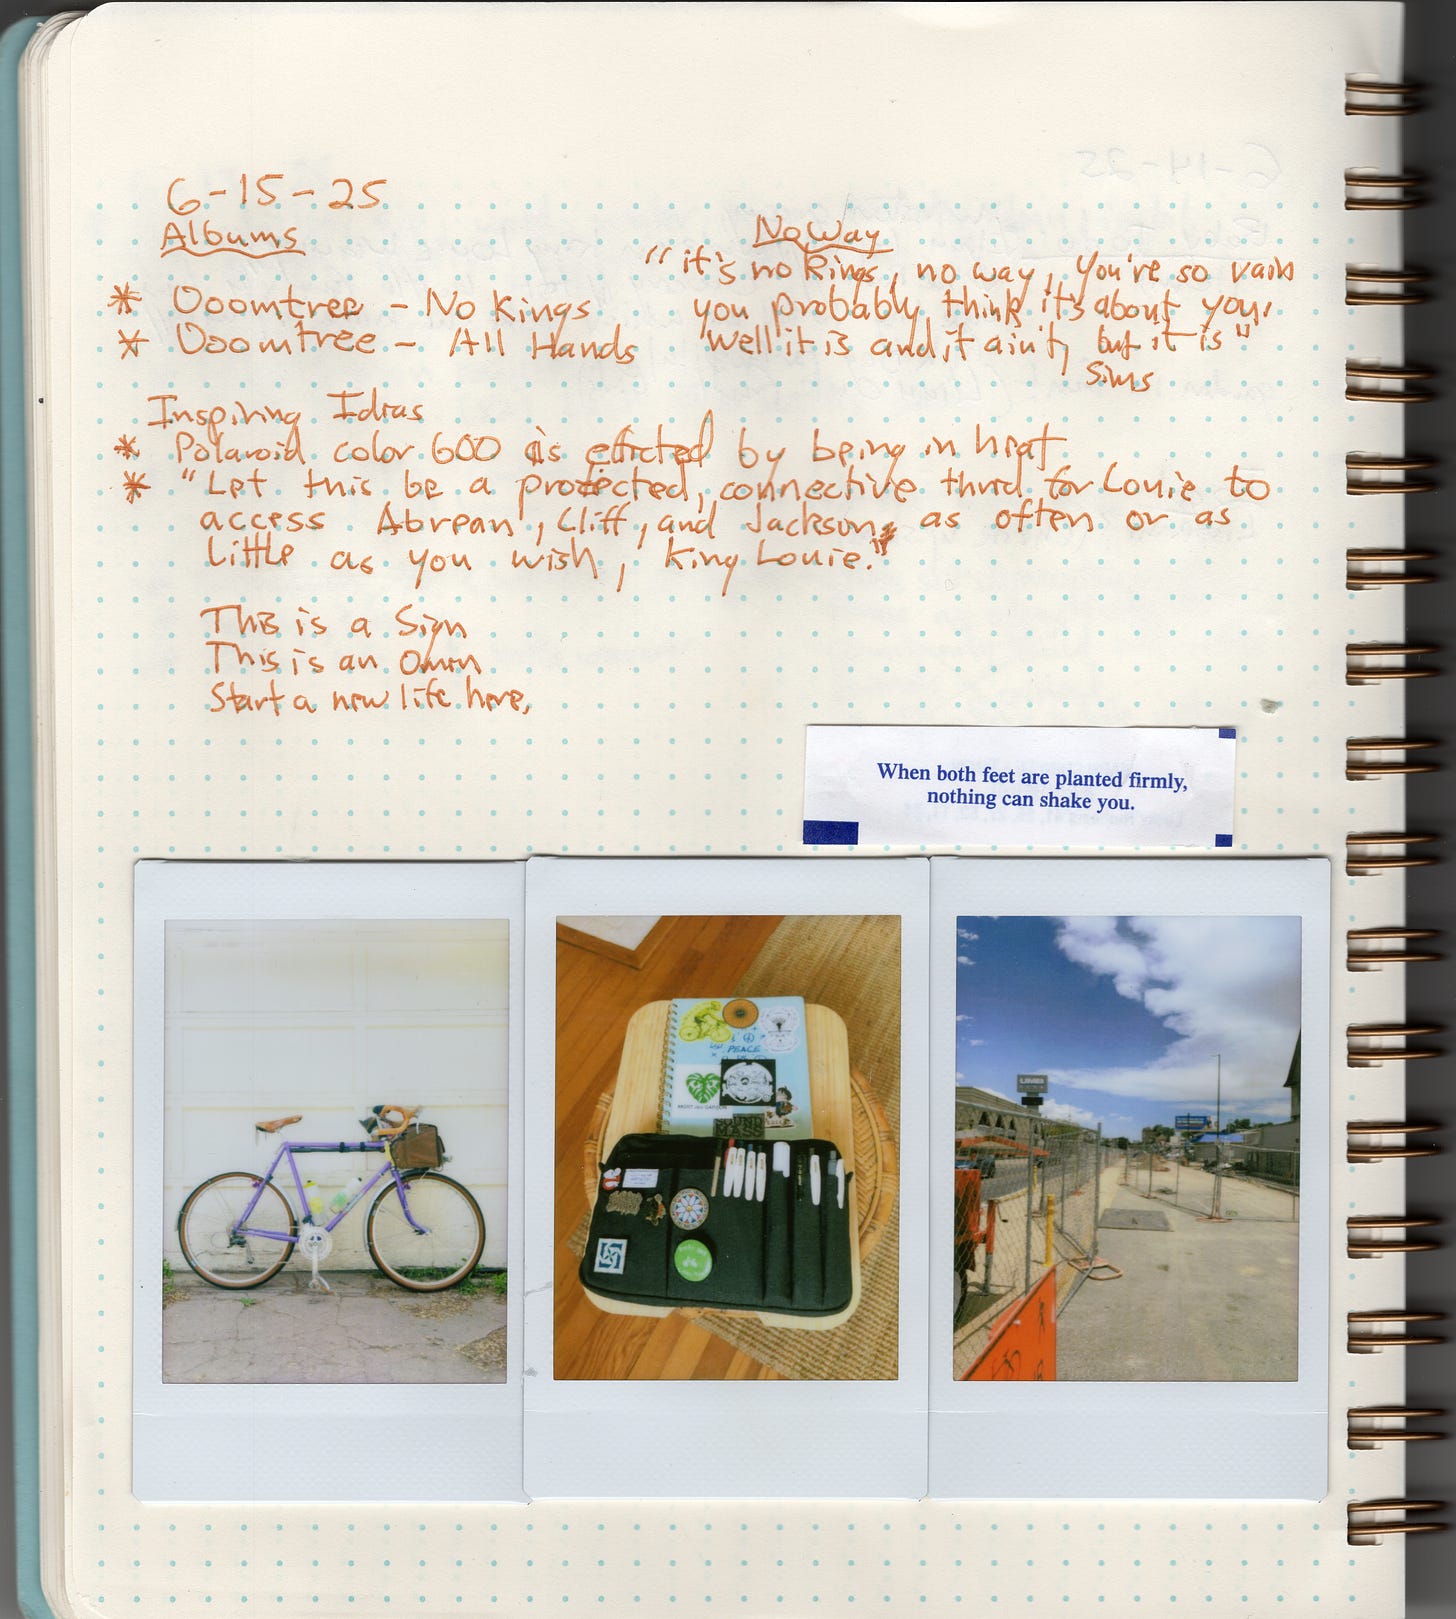 6-15-25
Albums
* Doomtree - No Kings
* Doomtree - All Hands
No Way
"it's no Kings, no way, you're so vain
you probably think it's about you,
well it is and it ain't, but it is"
Sims
Inspiring Ideas
* Polaroid color 600 is effected by being in heat
* "Let this be a protected, connective thred for Louie to
access Abrean, Cliff, and Jackson, as often or as
little as you wish, King Louie."
This is a Sign
This is an Omen
Start a new life here.
When both feet are planted firmly,
nothing can shake you.
PEACE
UMB